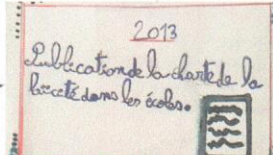 2013
Publication de la charte de la
laïcité dans les écoles.